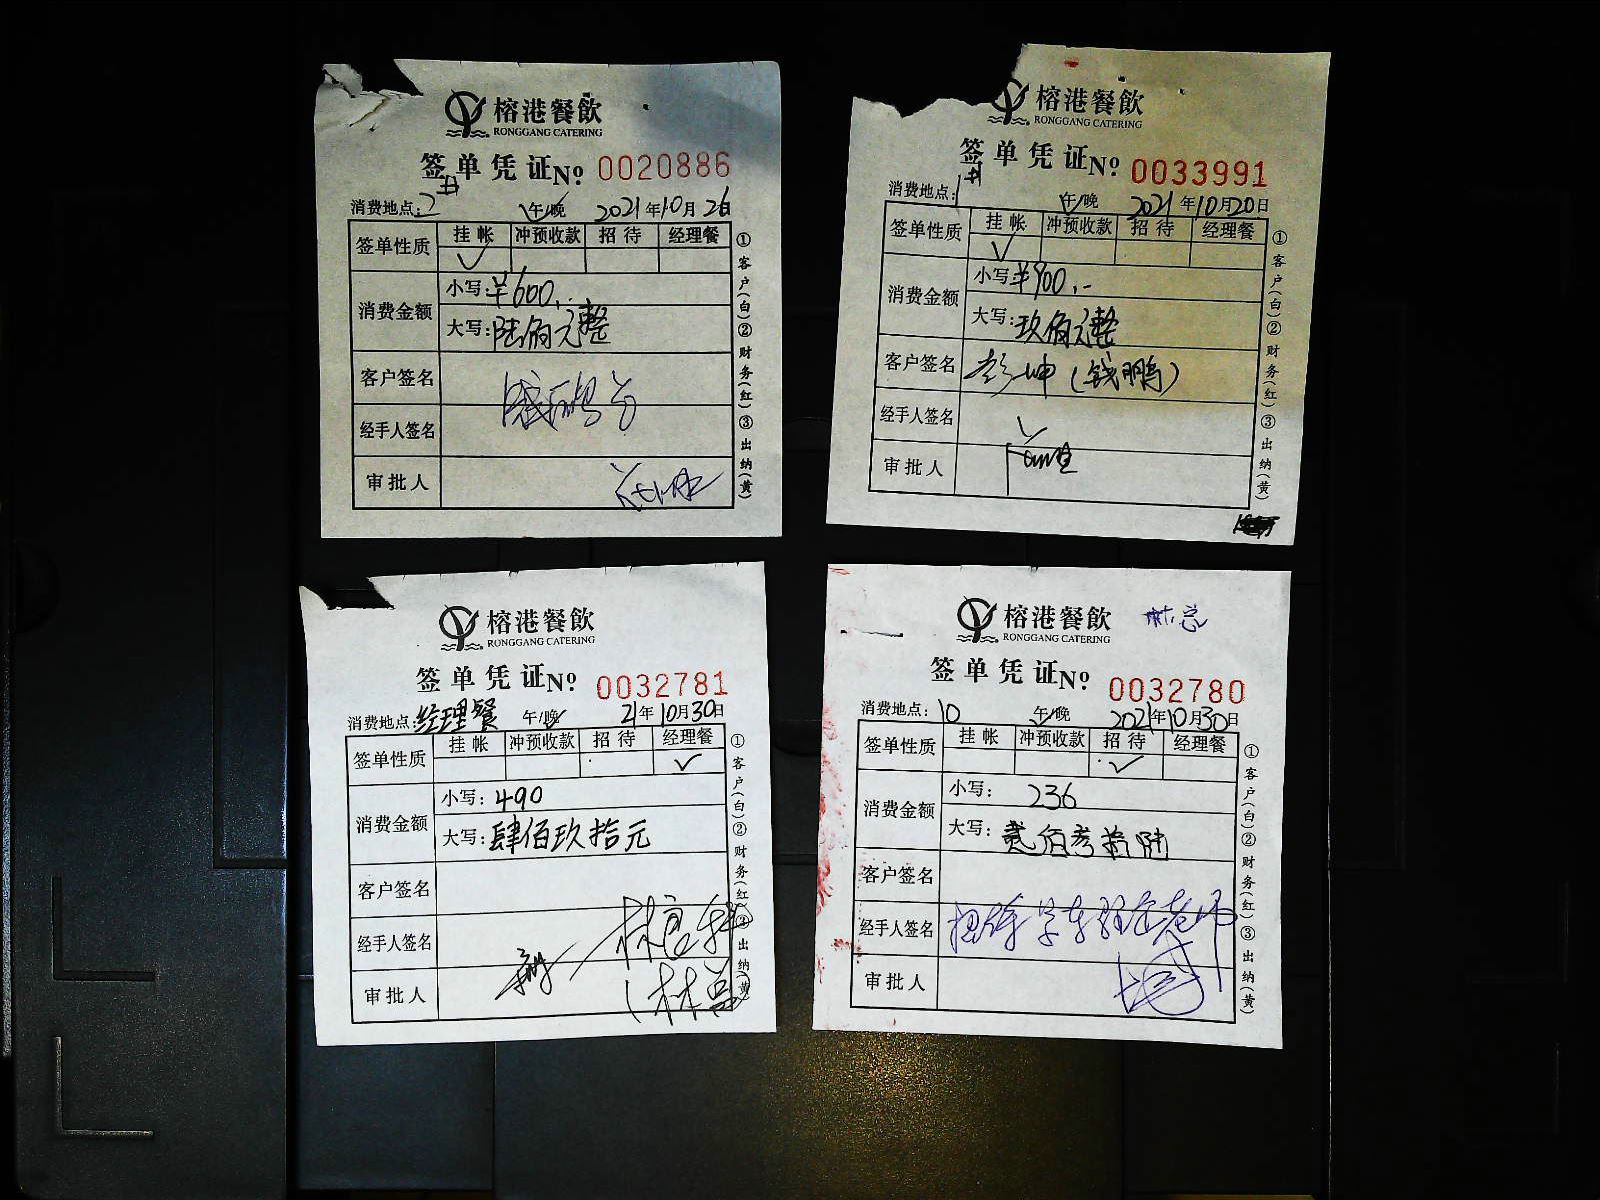 榕港餐飲
RONGGANG CATERING
签单凭证 No. 0020886
消费地点: 2# 午/晚 2021年10月26日
签单性质 挂帐 冲预收款 招待 经理餐
✓
消费金额 小写: ¥600.-
大写: 陆佰元整
客户签名
经手人签名
审批人
①客户(白)②财务(红)③出纳(黄)
榕港餐飲
RONGGANG CATERING
签单凭证 No. 0033991
消费地点: 1# 午/晚 2021年10月20日
签单性质 挂帐 冲预收款 招待 经理餐
✓
消费金额 小写: ¥900.-
大写: 玖佰元整
客户签名 彭坤(钱鹏)
经手人签名
审批人
①客户(白)②财务(红)③出纳(黄)
榕港餐飲
RONGGANG CATERING
签单凭证 No. 0032781
消费地点: 经理餐 午/晚 21年10月30日
签单性质 挂帐 冲预收款 招待 经理餐
✓
消费金额 小写: 490
大写: 肆佰玖拾元
客户签名
经手人签名
审批人 (林总
①客户(白)②财务(红)③出纳(黄)
榕港餐飲
RONGGANG CATERING
林总
签单凭证 No. 0032780
消费地点: 10 午/晚 2021年10月30日
签单性质 挂帐 冲预收款 招待 经理餐
✓
消费金额 小写: 236
大写: 贰佰叁拾陆
客户签名
经手人签名
审批人
①客户(白)②财务(红)③出纳(黄)